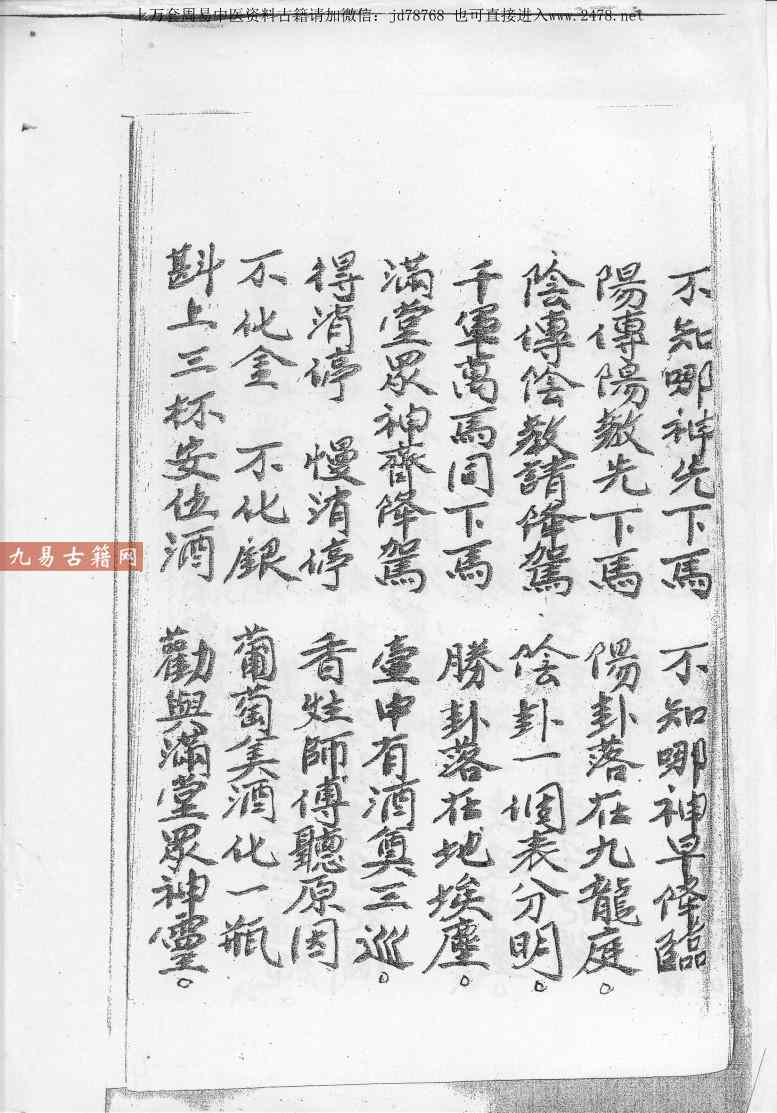 上万套周易中医资料古籍请加微信：jd78768 也可直接进入www.2478.net
不知哪神先下馬 不知哪神早降臨
陽傳陽教先下馬 陽卦落在九龍庭。
陰傳陰教請降駕 陰卦一個表分明。
千軍萬馬同下馬 勝卦落在地埃塵。
滿堂眾神齊降駕 臺中有酒奠三巡。
得消停 慢消停 香灶師傅聽原因
不化金 不化銀 葡萄美酒化一瓶
斟上三杯安位酒 勸與滿堂眾神靈。
九易古籍网